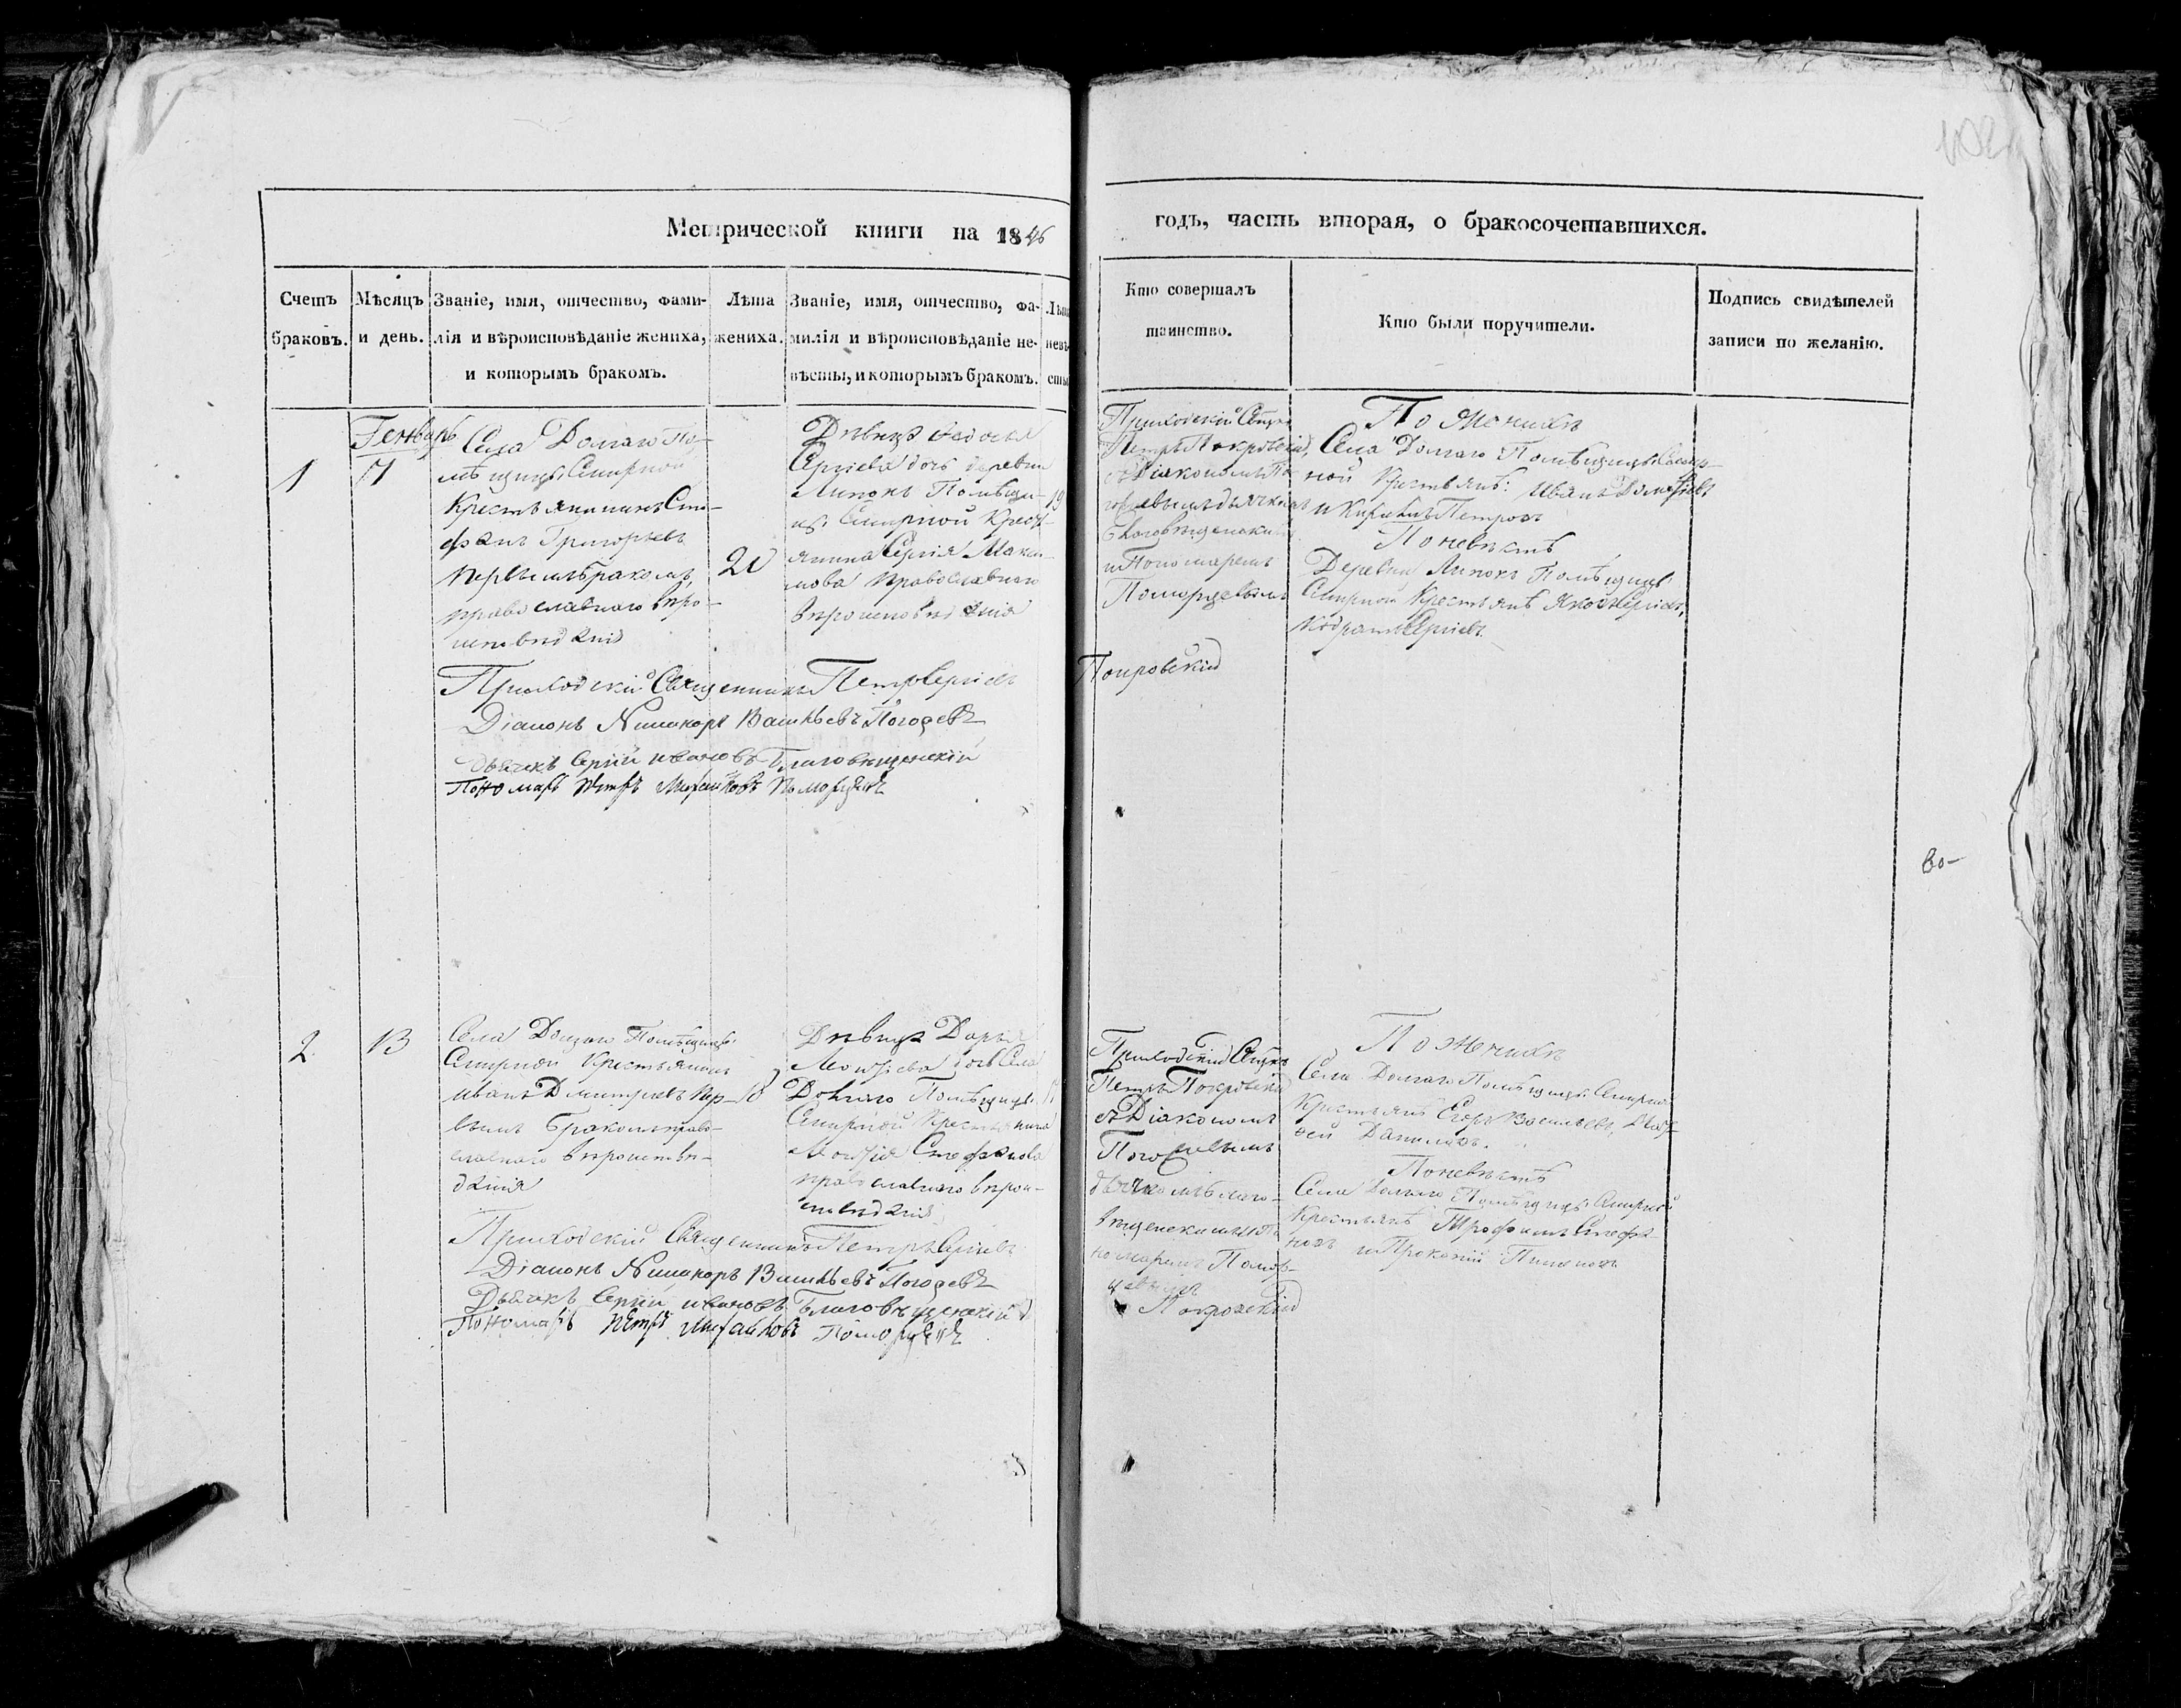 Метрической книги на 1846
годъ, часть вторая, о бракосочетавшихся.
Счетъ браковъ.
Мѣсяцъ и день.
Званіе, имя, отчество, фами-
лія и вѣроисповѣданіе жениха,
и которымъ бракомъ.
Лѣта
жениха.
Званіе, имя, отчество, фа-
милія и вѣроисповѣданіе не-
вѣсты, и которымъ бракомъ.
Лѣта
невѣ-
сты
Кто совершалъ
таинство.
Кто были поручители.
Подпись свидѣтелей
записи по желанію.
Генварь
1
Села Долгаго По-
мѣщицы Смирной
Крестьянинъ Сте-
фанъ Григорьевъ
первымъ бракомъ
православнаго вѣро-
исповѣданія
20
Дѣвица Федосья
Сергіева дочь деревни
Липокъ Помѣщи-
цы Смирной Кресть-
янина Сергія Макси-
мова православнаго
вѣроисповѣданія
19
Приходскій Свщнкъ
Петръ Покровскій
съ Діакономъ По-
дьячкомъ
и Пономаремъ
Поморцевымъ
Покровскій
По женихѣ
Села Долгаго Помѣщицы Смир-
ной Крестьянѣ: Иванъ
и Петровъ
По невѣстѣ
Деревни Липокъ Помѣщицы
Смирной Крестьянѣ Яковъ Сергіевъ,
Кодратъ Сергіевъ
Приходскій Священникъ Петръ Сергіевъ
Діаконъ Никаноръ Васильевъ Погодевъ
Дьячекъ Сергій Ивановъ Благовѣщенскій
Пономарь Петръ Михайловъ Поморцевъ
2
13
Села Долгаго Помѣщицы
Смирной Крестьянинъ
Иванъ Дмитріевъ пер-
вымъ бракомъ право-
славнаго вѣроисповѣ-
данія
18
Дѣвица Дарья
Моисіева дочь Села
Долгаго Помѣщицы
Смирной Крестьянина
Моисія Стефанова
православнаго вѣрои-
сповѣданія
Приходскій Свщнкъ
Петръ Покровскій
съ Діакономъ
дьячкомъ Благо-
вѣщенскимъ и По-
номаремъ Помор-
цевымъ
Покровскій
По женихѣ
Села Долгаго Помѣщицы Смирной
Крестьянѣ Егоръ Васильевъ,
Даниловъ.
По невѣстѣ
Села Долгаго Помѣщицы Смирной
Крестьянѣ Трофимъ Стефа-
новъ и Прокопій
Приходскій Священникъ Петръ Сергіевъ
Діаконъ Никаноръ Васильевъ Погодевъ
Дьячекъ Сергій Ивановъ Благовѣщенскій
Пономарь Петръ Михайловъ Поморцевъ